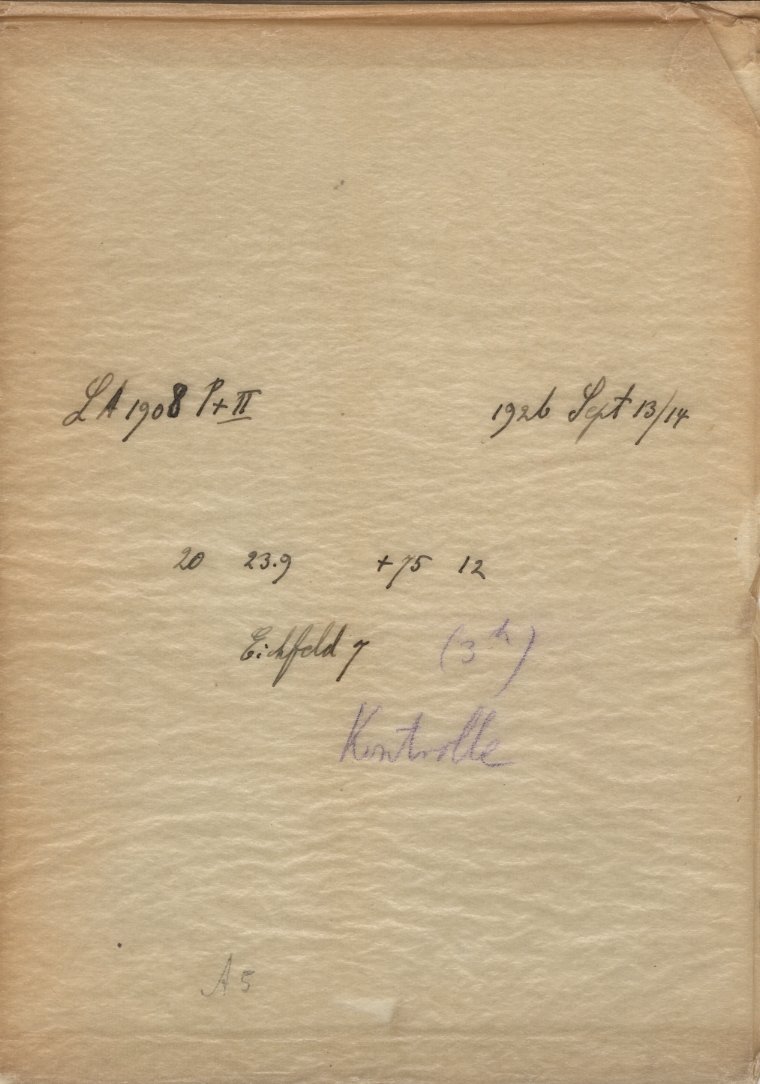 LA 1908 P+II 1926 Sept 13/14
20 23.9 +75 12
Eichfeld 7 (3h)
Kontrolle
A5